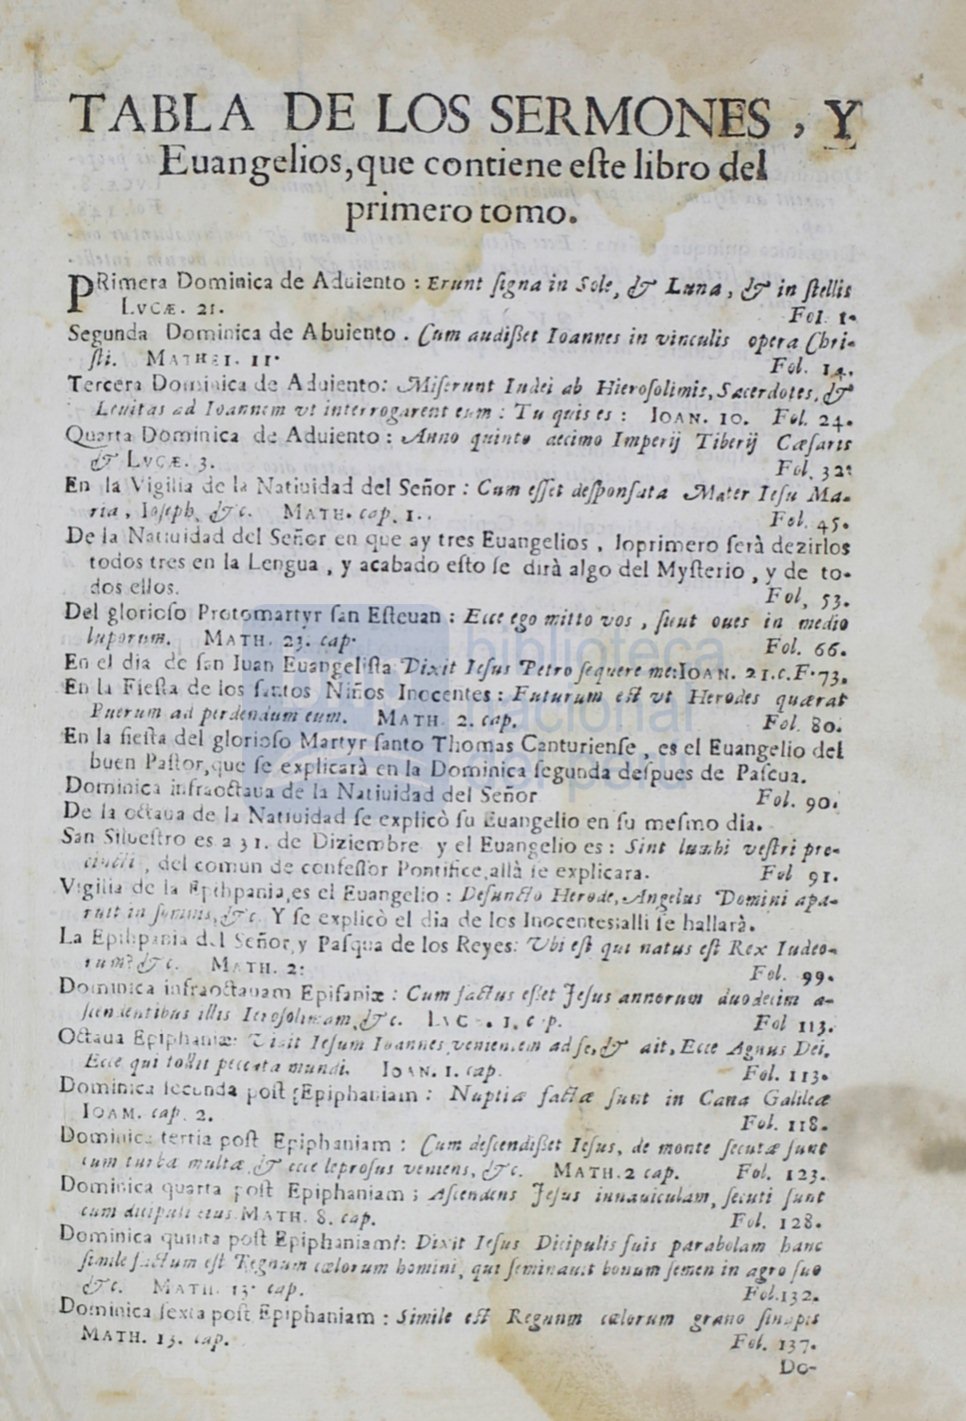 TABLA DE LOS SERMONES, Y
Euangelios, que contiene eſte libro del
primero tomo.
PRimera Dominica de Aduiento : Erunt ſigna in Sole, & Luna, & in ſtellis
LVCÆ. 21. Fol. 1.
Segunda Dominica de Abuiento. Cum audiſſet Ioannes in vinculis opera Chri-
ſti. MATHEI. 11. Fol. 14.
Tercera Dominica de Aduiento: Miſerunt Iudei ab Hieroſolimis, Sacerdotes, &
Leuitas ad Ioannem vt interrogarent eum : Tu quis es : IOAN. 10. Fol. 24.
Quarta Dominica de Aduiento : Anno quinto decimo Imperij Tiberij Cæſaris
& LVCÆ. 3. Fol. 32.
En la Vigilia de la Natiuidad del Señor : Cum eſſet deſponſata Mater Ieſu Ma-
ria, Ioſeph, &c. MATH. cap. 1.. Fol. 45.
De la Natiuidad del Señor en que ay tres Euangelios, loprimero ſerà dezirlos
todos tres en la Lengua, y acabado eſto ſe dirà algo del Myſterio, y de to-
dos ellos. Fol, 53.
Del glorioſo Protomartyr ſan Eſteuan : Ecce ego mitto vos, ſunt oues in medio
luporum. MATH. 23. cap. Fol. 66.
En el dia de ſan Iuan Euangeliſta Dixit Ieſus Petro ſequere me:IOAN. 21.c.F.73.
En la Fieſta de los ſantos Niños Inocentes : Futurum eſt vt Herodes quærat
Puerum ad perdendum eum. MATH. 2. cap. Fol. 80.
En la fieſta del glorioſo Martyr ſanto Thomas Canturienſe, es el Euangelio del
buen Paſtor, que ſe explicarà en la Dominica ſegunda deſpues de Paſcua.
Dominica infraoctaua de la Natiuidad del Señor Fol. 90.
De la octaua de la Natiuidad ſe explicò ſu Euangelio en ſu meſmo dia.
San Silueſtro es a 31. de Diziembre y el Euangelio es : Sint lumbi veſtri pre-
cincti, del comun de confeſſor Pontifice, allà ſe explicara. Fol 91.
Vigilia de la Epihpania, es el Euangelio : Defuncto Herode, Angelus Domini apa-
ruit in ſomnis, &c. Y ſe explicò el dia de los Inocentes; alli ſe hallarà.
La Epihpania del Señor, y Paſqua de los Reyes: Vbi eſt qui natus eſt Rex Iudeo-
rum? &c. MATH. 2: Fol. 99.
Dominica infraoctauam Epifaniæ : Cum factus eſſet Jeſus annorum duodecim a-
ſcendentibus illis Ieroſolimam, &c. LVC. 1. cap. Fol 113.
Octaua Epiphaniæ: Vidit Ieſum Ioannes venientem ad ſe, & ait, Ecce Agnus Dei,
Ecce qui tollit peccata mundi. IOAN. 1. cap. Fol. 113.
Dominica ſecunda poſt Epiphaniam : Nuptiæ factæ ſunt in Cana Galileæ
IOAM. cap. 2. Fol. 118.
Dominica tertia poſt Epiphaniam : Cum deſcendiſſet Ieſus, de monte ſecutæ ſunt
eum turba multæ & ecce leproſus veniens, &c. MATH. 2 cap. Fol. 123.
Dominica quarta poſt Epiphaniam ; Aſcendens Jeſus innauiculam, ſecuti ſunt
eum dicipuli eius. MATH. 8. cap. Fol. 128.
Dominica quinta poſt Epiphaniam: Dixit Ieſus Dicipulis ſuis parabolam hanc
ſimile factum eſt Regnum cælorum homini, qui ſeminauit bonum ſemen in agro ſuo
&c. MATH. 13. cap. Fol.132.
Dominica ſexta poſt Epiphaniam : Simile eſt Regnum cælorum grano ſinapis
MATH. 13. cap. Fol. 137.
Do-
biblioteca
nacional
del perú